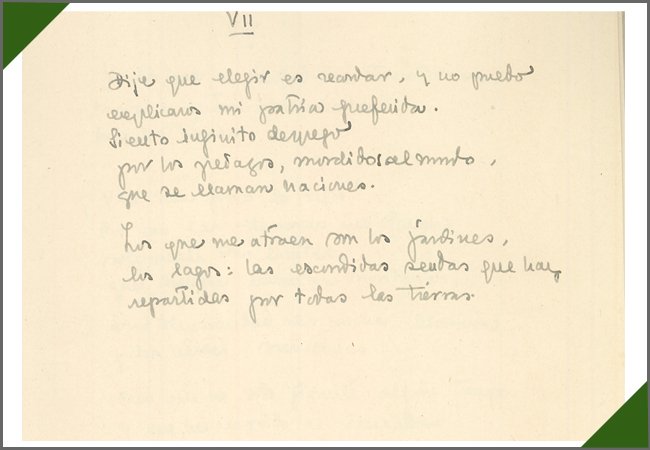 VII
Dije que elegir es recordar, y no puedo
explicaros mi patria preferida.
Siento infinito despego
por los pedazos, mordidos al mundo,
que se llaman naciones.
Los que me atraen son los jardines,
los lagos: las escondidas sendas que hay
repartidas por todas las tierras.